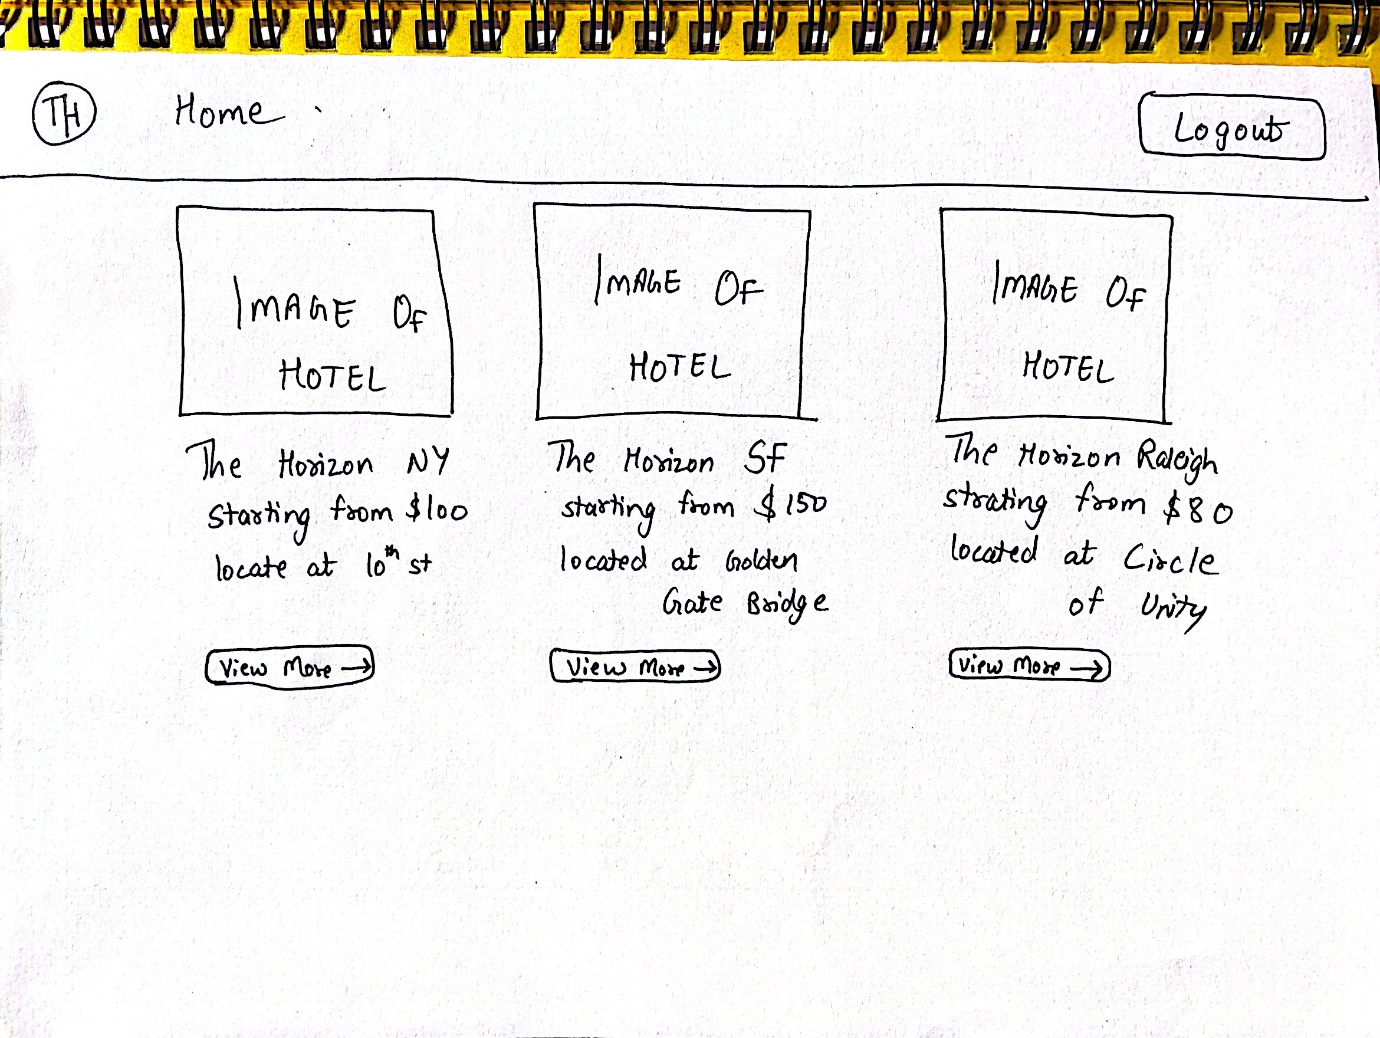 TH Home Logout
IMAGE OF
HOTEL
The Horizon NY
starting from $100
locate at 10th st
View More →
IMAGE OF
HOTEL
The Horizon SF
starting from $150
located at Golden
Gate Bridge
View More →
IMAGE OF
HOTEL
The Horizon Raleigh
strating from $80
located at Circle
of Unity
View More →